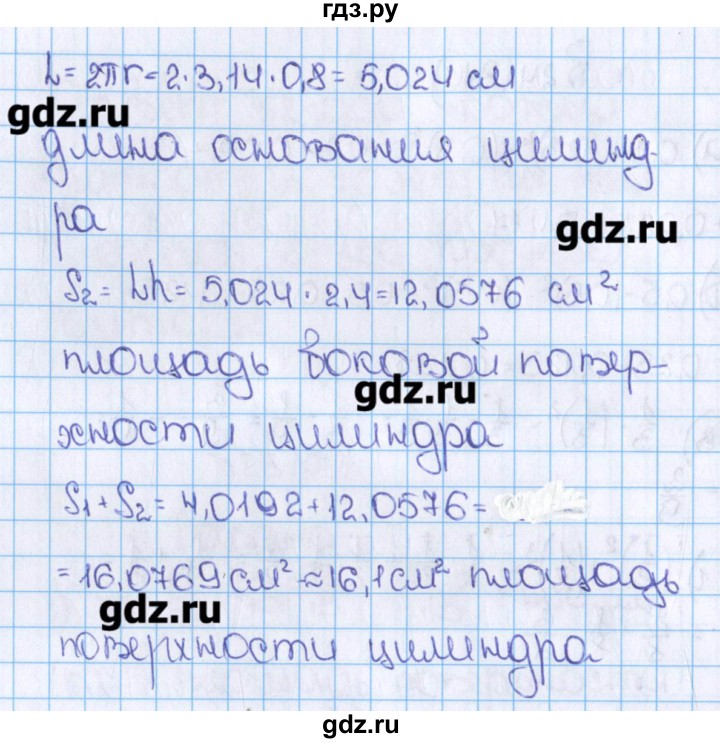 гдз.ру
L = 2πr = 2·3,14·0,8 = 5,024 см
gdz.ru
длина основания цилинд-
ра
gdz.ru
S₂ = Lh = 5,024 · 2,4 = 12,0576 см²
площадь боковой повер-
gdz.ru
хности цилиндра
S₁ + S₂ = 4,0192 + 12,0576 =
= 16,0769 см² ≈ 16,1 см² площадь
gdz.ru
поверхности цилиндра
gdz.ru